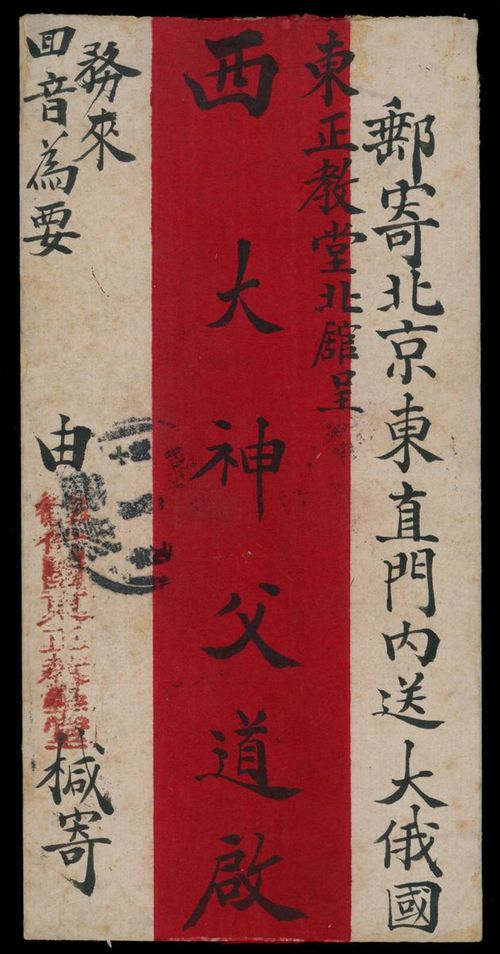 郵寄北京東直門內送大俄國
東正教堂北舘呈
西大神父道啟
務來
回音為要
由
東正教
椷寄